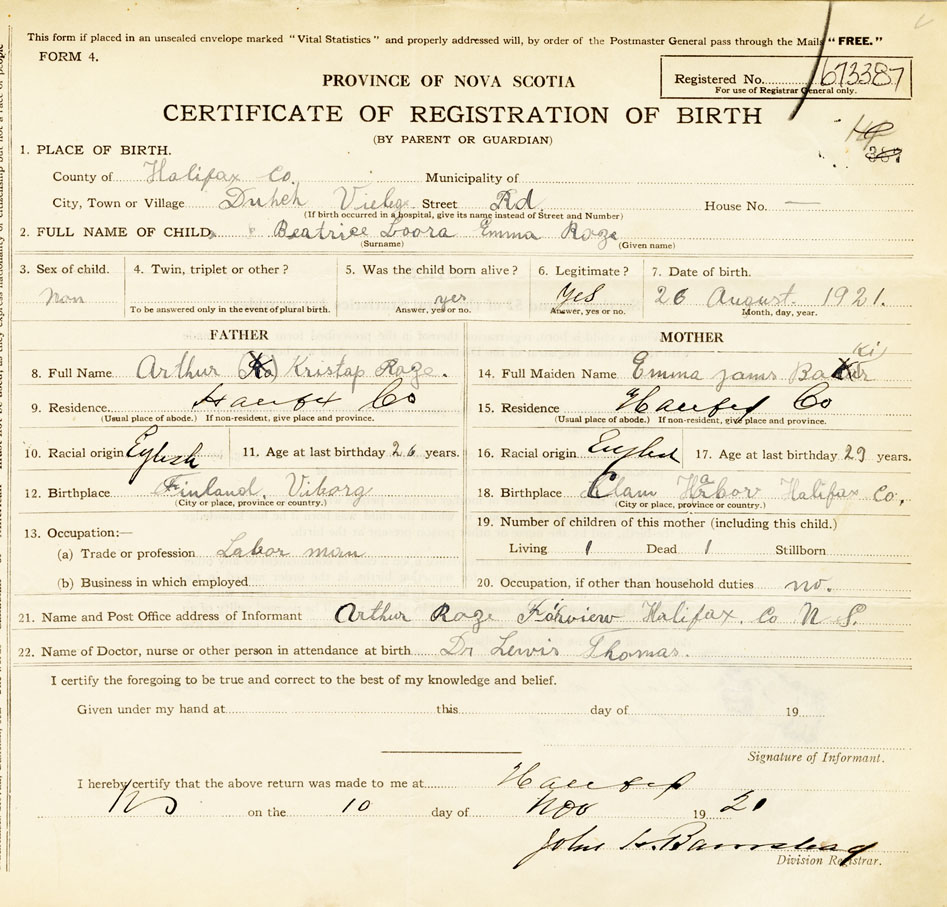 This form if placed in an unsealed envelope marked "Vital Statistics" and properly addressed will, by order of the Postmaster General pass through the Mails "FREE."
FORM 4.
Registered No. 673387
For use of Registrar General only.
PROVINCE OF NOVA SCOTIA
CERTIFICATE OF REGISTRATION OF BIRTH
(BY PARENT OR GUARDIAN)
1. PLACE OF BIRTH.
County of Halifax Co. Municipality of
City, Town or Village Street Rd House No. —
(If birth occurred in a hospital, give its name instead of Street and Number)
2. FULL NAME OF CHILD Beatrice Loora Emma Roze
(Surname) (Given name)
3. Sex of child. 4. Twin, triplet or other? 5. Was the child born alive? 6. Legitimate? 7. Date of birth.
yes yes 26 August 1921.
To be answered only in the event of plural birth. Answer, yes or no. Answer, yes or no. Month, day, year.
FATHER MOTHER
8. Full Name Arthur Kristap Roze. 14. Full Maiden Name Emma
9. Residence Halifax Co 15. Residence Halifax Co
(Usual place of abode.) If non-resident, give place and province. (Usual place of abode.) If non-resident, give place and province.
10. Racial origin English 11. Age at last birthday 26 years. 16. Racial origin English 17. Age at last birthday 29 years.
12. Birthplace Finland. Viborg 18. Birthplace Clam Harbor Halifax Co,
(City or place, province or country.) (City or place, province or country.)
13. Occupation:— 19. Number of children of this mother (including this child.)
(a) Trade or profession Labor man Living 1 Dead 1 Stillborn
(b) Business in which employed 20. Occupation, if other than household duties no.
21. Name and Post Office address of Informant Arthur Roze Fairview Halifax. Co N S.
22. Name of Doctor, nurse or other person in attendance at birth Dr Lewis Thomas.
I certify the foregoing to be true and correct to the best of my knowledge and belief.
Given under my hand at this day of 19
Signature of Informant.
I hereby certify that the above return was made to me at Halifax
NS on the 10 day of Nov 19 21
John H. Barnstead
Division Registrar.